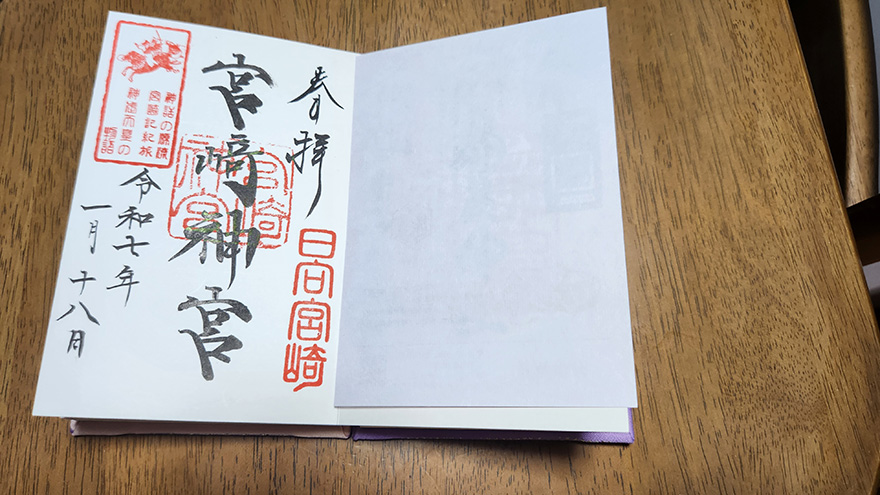 奉拝
日向宮崎
宮崎神宮
宮崎
神宮
神話の源流
宮崎記紀旅
神武天皇の
物語
令和七年
一月十八日